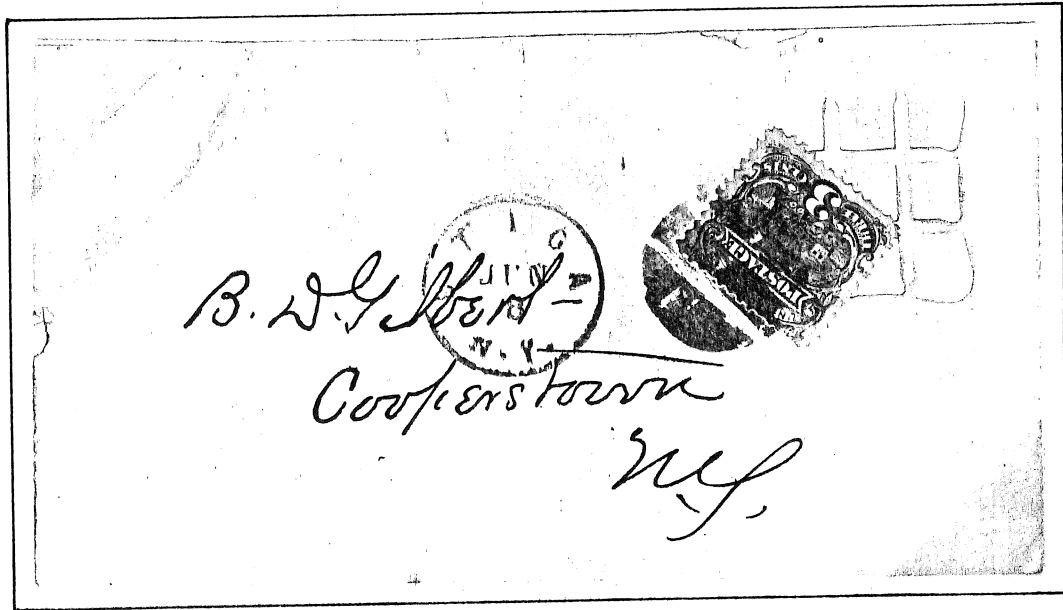 T I C A
JUN
N.Y.
3
B. D. Gilbert
Cooperstown
N.Y.